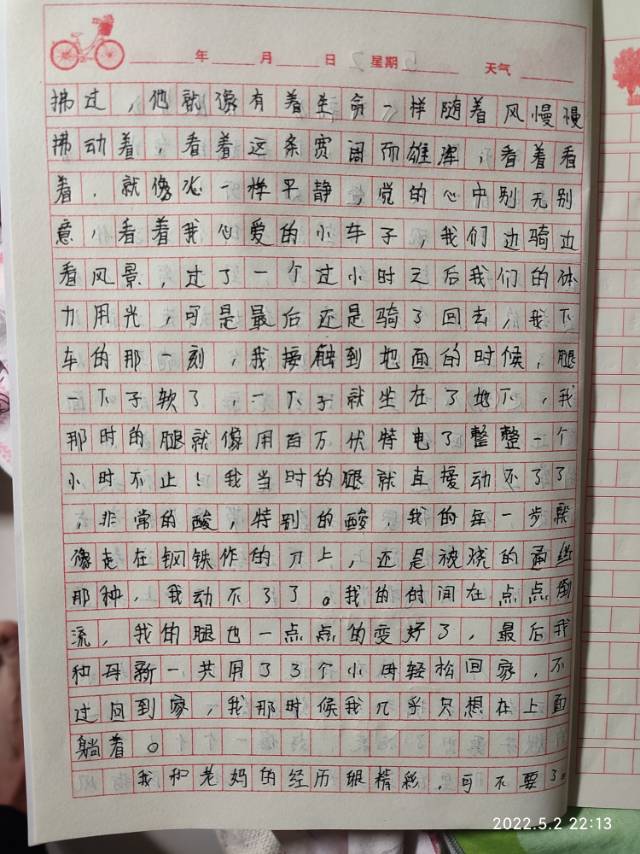 年 月 日 星期 天气
拂过，他就像有着生命一样随着风慢慢
拂动着，看着这条宽阔而雄浑，看着看
着，就像水一样平静，觉的心中别无别
意，看着我心爱的小车子，我们边骑边
看风景，过了一个过小时之后我们的体
力用光，可是最后还是骑了回去，我下
车的那一刻，我接触到地面的时候，腿
一下子软了，一下子就坐在了地下，我
那时的腿就像用百万伏特电了整整一个
小时不止！我当时的腿就直接动不了了
，非常的酸，特别的酸，我的每一步就
像走在钢铁作的刀上，还是被烧的通红
那种，我动不了了。我的时间在点点倒
流，我的腿也一点点的变好了，最后我
和母新一共用了3个小时轻松回家，不
过回到家，我那时候我几乎只想在上面
躺着。
我和老妈的经历很精彩，可不要3。
2022.5.2 22:13